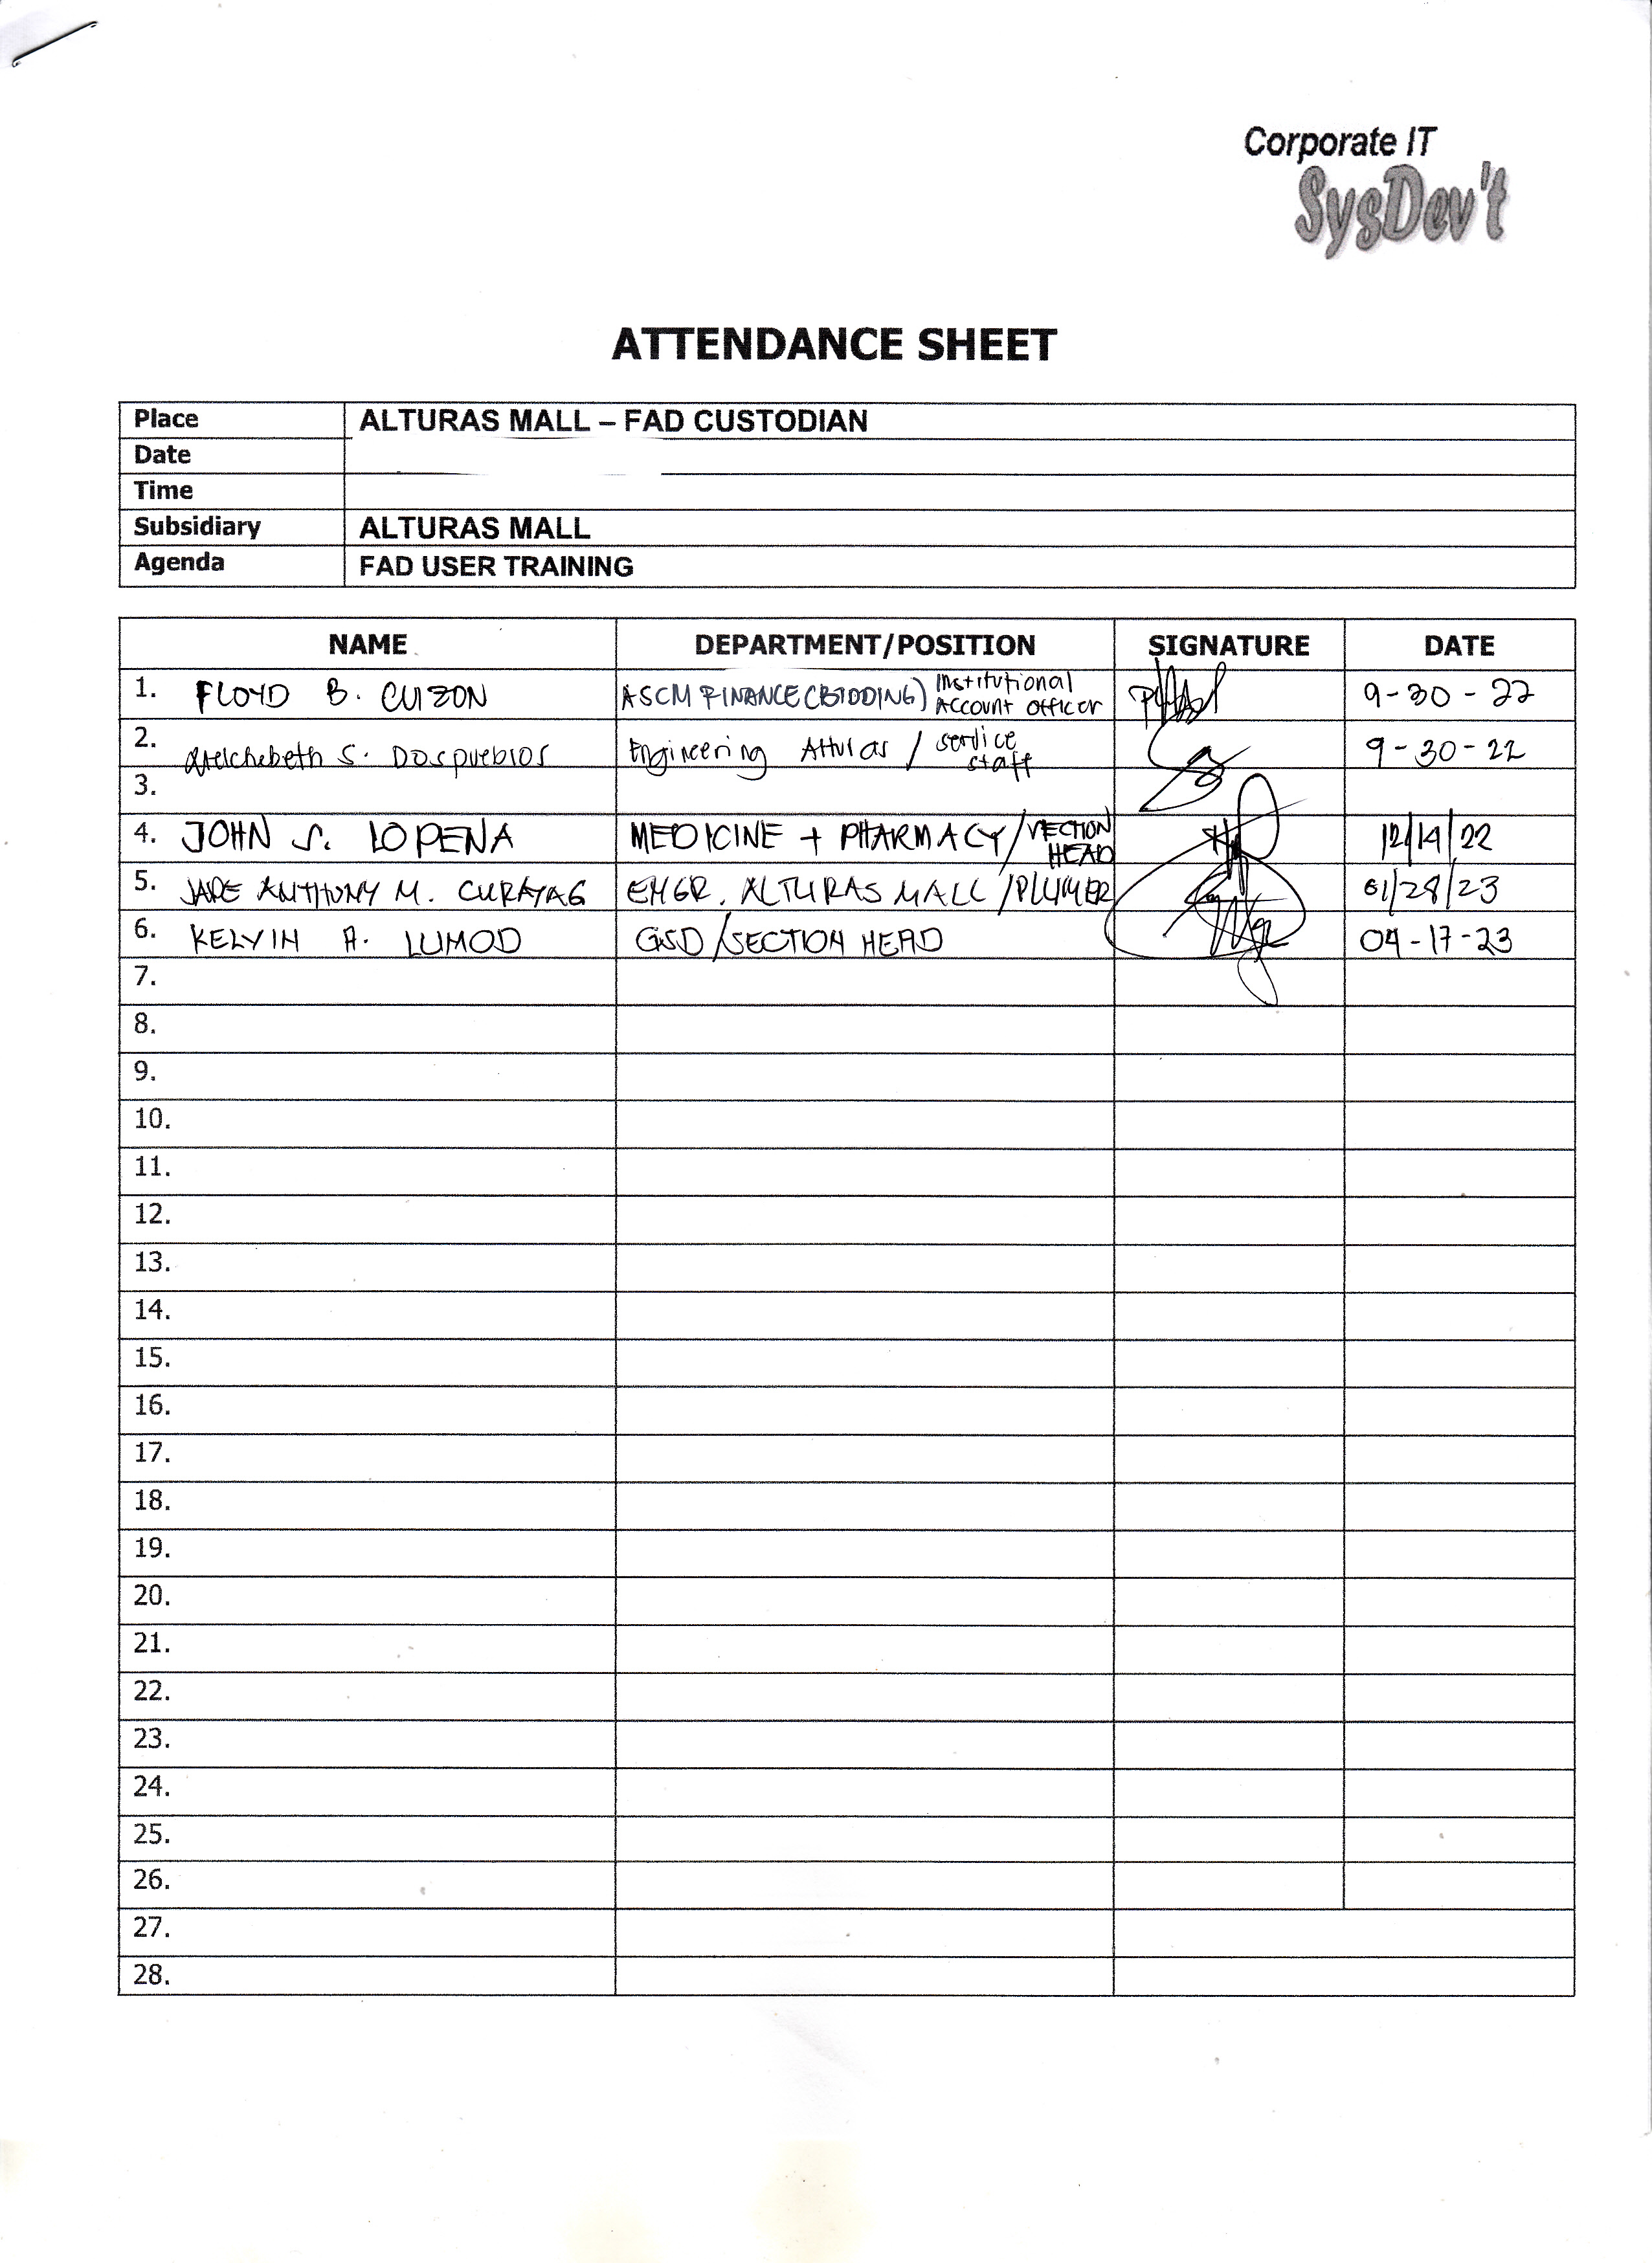 Corporate IT
SysDev't
ATTENDANCE SHEET
Place ALTURAS MALL – FAD CUSTODIAN
Date
Time
Subsidiary ALTURAS MALL
Agenda FAD USER TRAINING
NAME DEPARTMENT/POSITION SIGNATURE DATE
1. FLOYD B. CUIZON ASCM FINANCE (BIDDING) Institutional Account Officer 9-30-22
2. S. Dospueblos Engineering Alturas / service staff 9-30-22
3.
4. JOHN S. LOPENA MEDICINE + PHARMACY/SECTION HEAD 12/14/22
5. JADE ANTHONY M. CURAYAG ENGR. ALTURAS MALL/PLUMER 01/28/23
6. KELVIN A. LUMOD GSD/SECTION HEAD 04-17-23
7.
8.
9.
10.
11.
12.
13.
14.
15.
16.
17.
18.
19.
20.
21.
22.
23.
24.
25.
26.
27.
28.